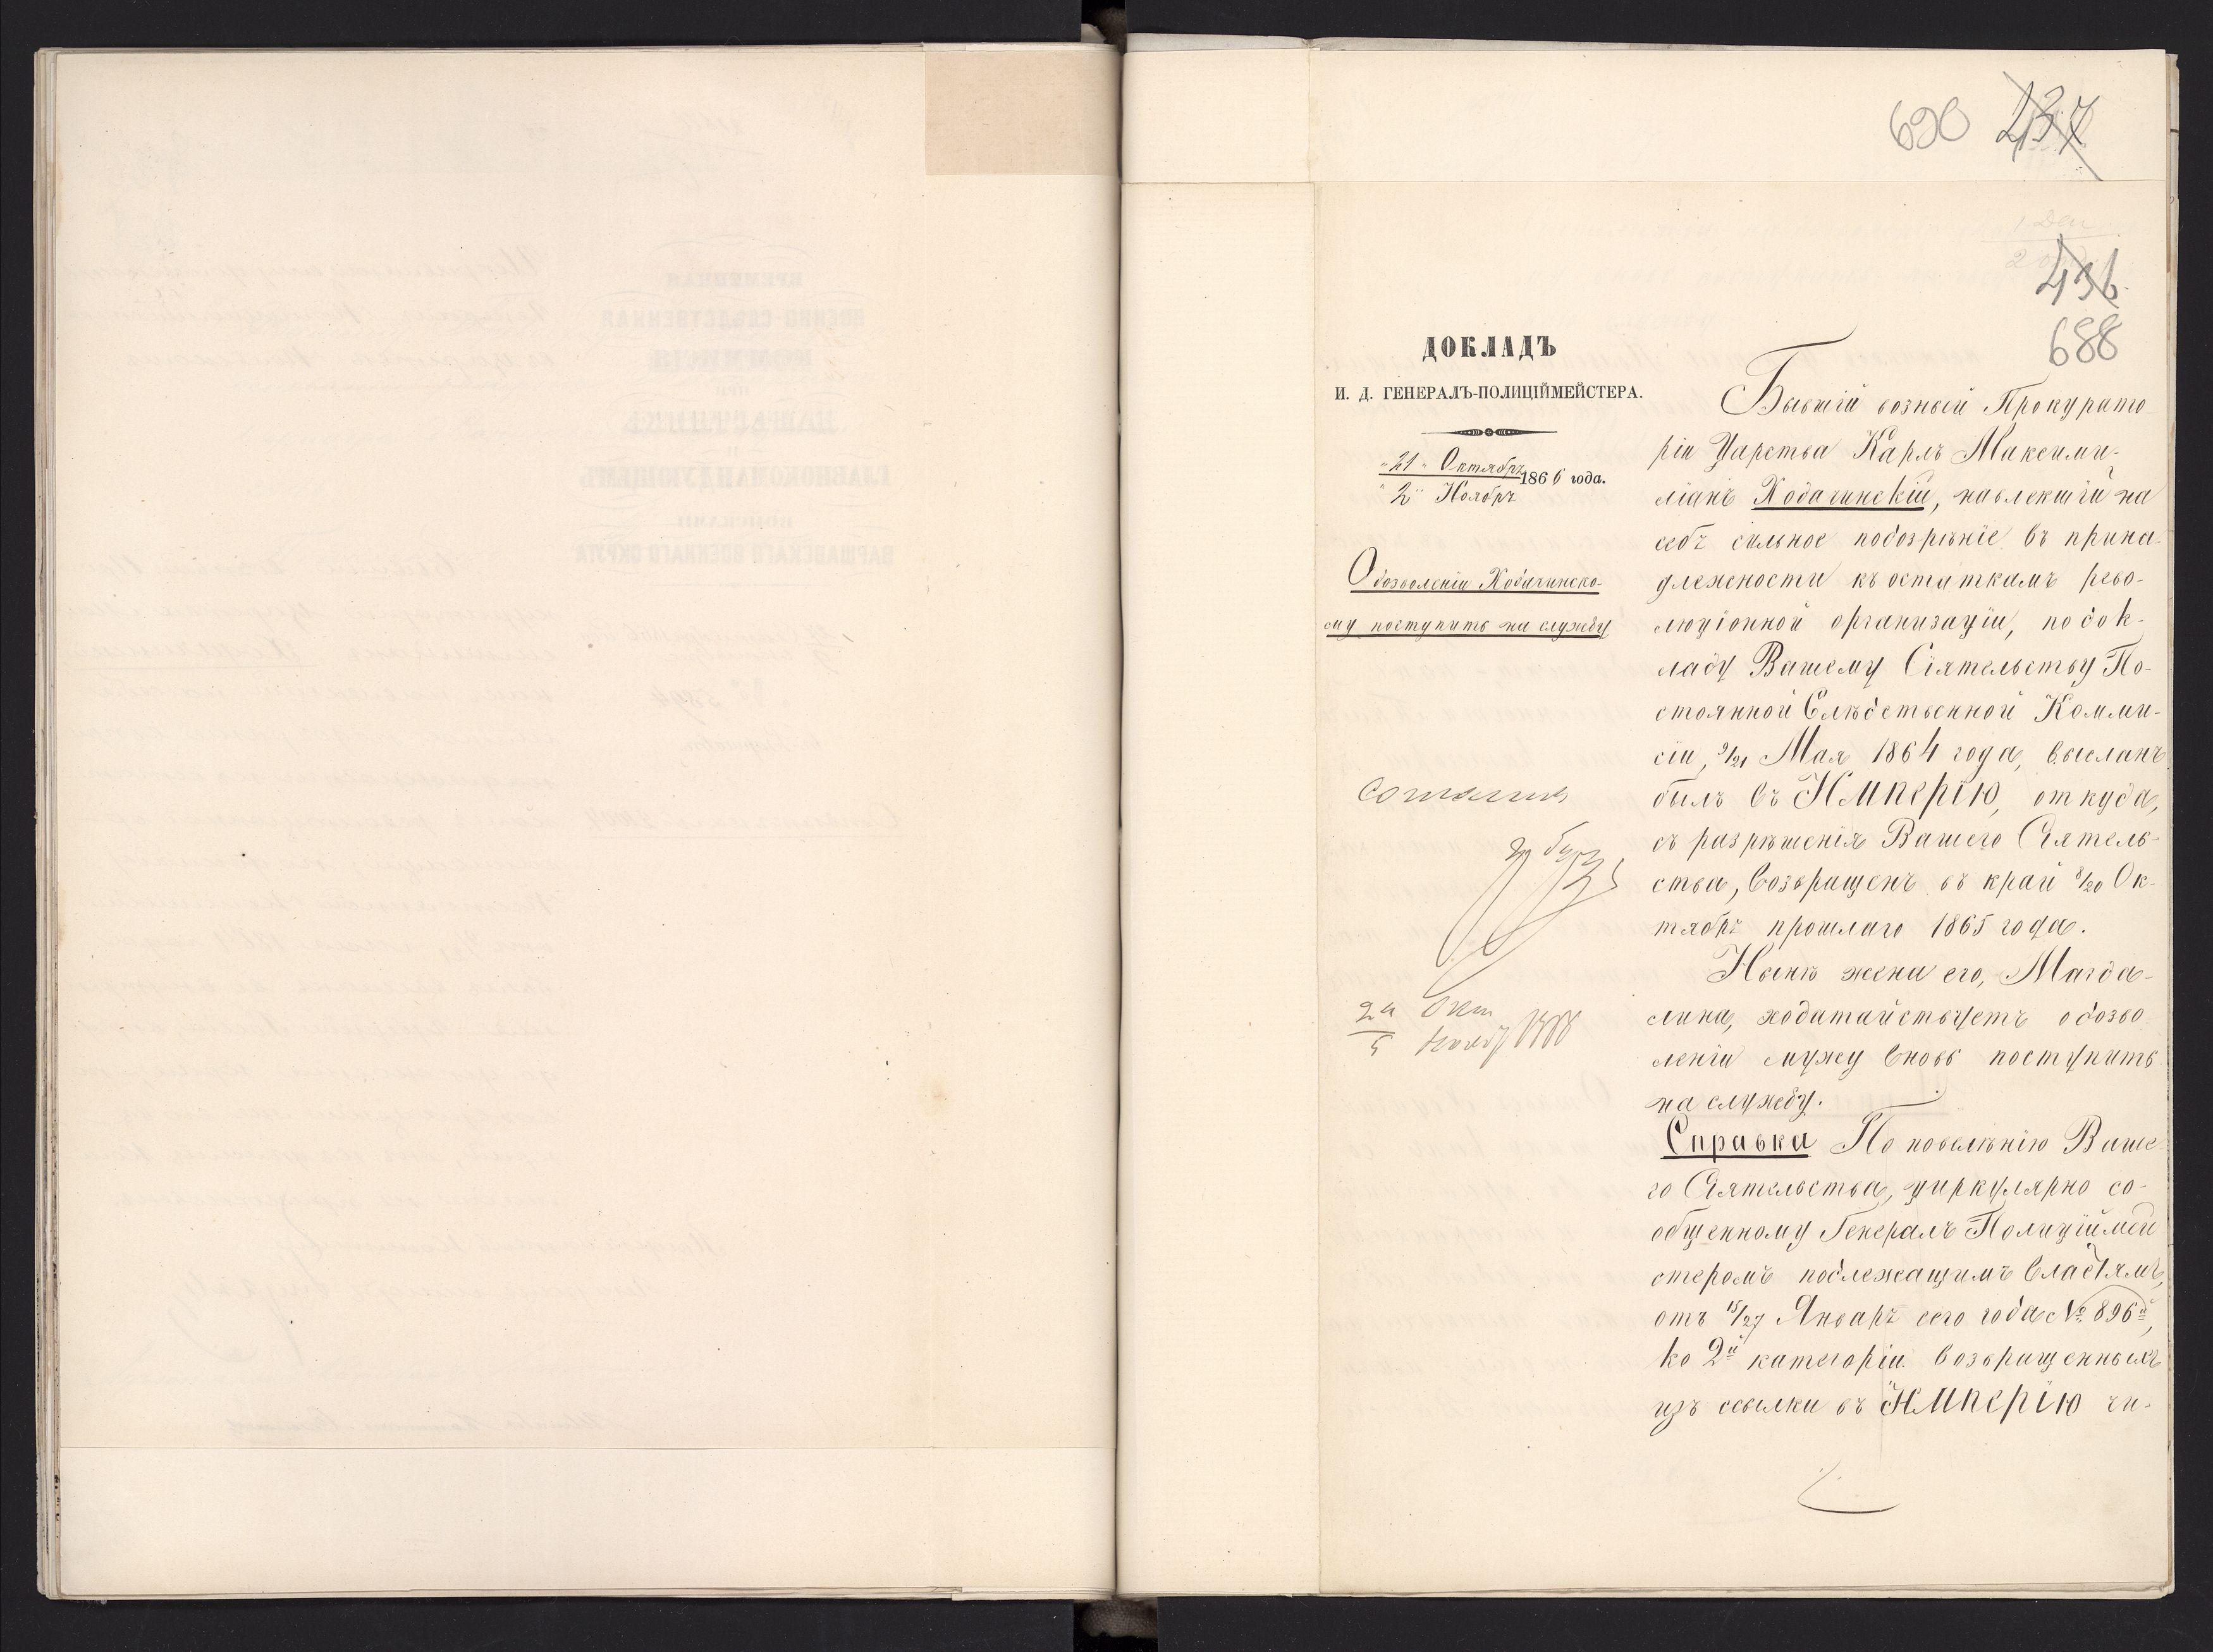 690 237
436
688
ДОКЛАДЪ
И. Д. ГЕНЕРАЛЪ-ПОЛИЦІЙМЕЙСТЕРА.
„21„ Октября
1866 года.
„2„ Ноября
О дозволеніи Ходачинско-
му поступить на службу
Согласенъ
Октя
Ноября
Бывшій возный Прокурато-
ріи Царства Карлъ Максими-
ліанъ Ходачинскій, навлекшій на
себя сильное подозрѣніе въ прина-
длежности къ остаткамъ рево-
люціонной организаціи, по док-
ладу Вашему Сіятельству По-
стоянной Слѣдственной Комми-
сіи, 9/21 Мая 1864 года, высланъ
былъ въ Имперію, откуда,
съ разрѣшенія Вашего Сіятель-
ства, возвращенъ въ край 8/20 Ок-
тября прошлаго 1865 года.
Нынѣ жена его, Магда-
лина, ходатайствуетъ о дозво-
леніи мужу вновь поступить
на службу.
Справка По повелѣнію Ваше-
го Сіятельства, циркулярно со-
общенному Генералъ Полиціймей-
стеромъ подлежащимъ властямъ,
отъ 15/27 Января сего года № 896й,
ко 2й категоріи возвращенныхъ
изъ ссылки въ Имперію чи-